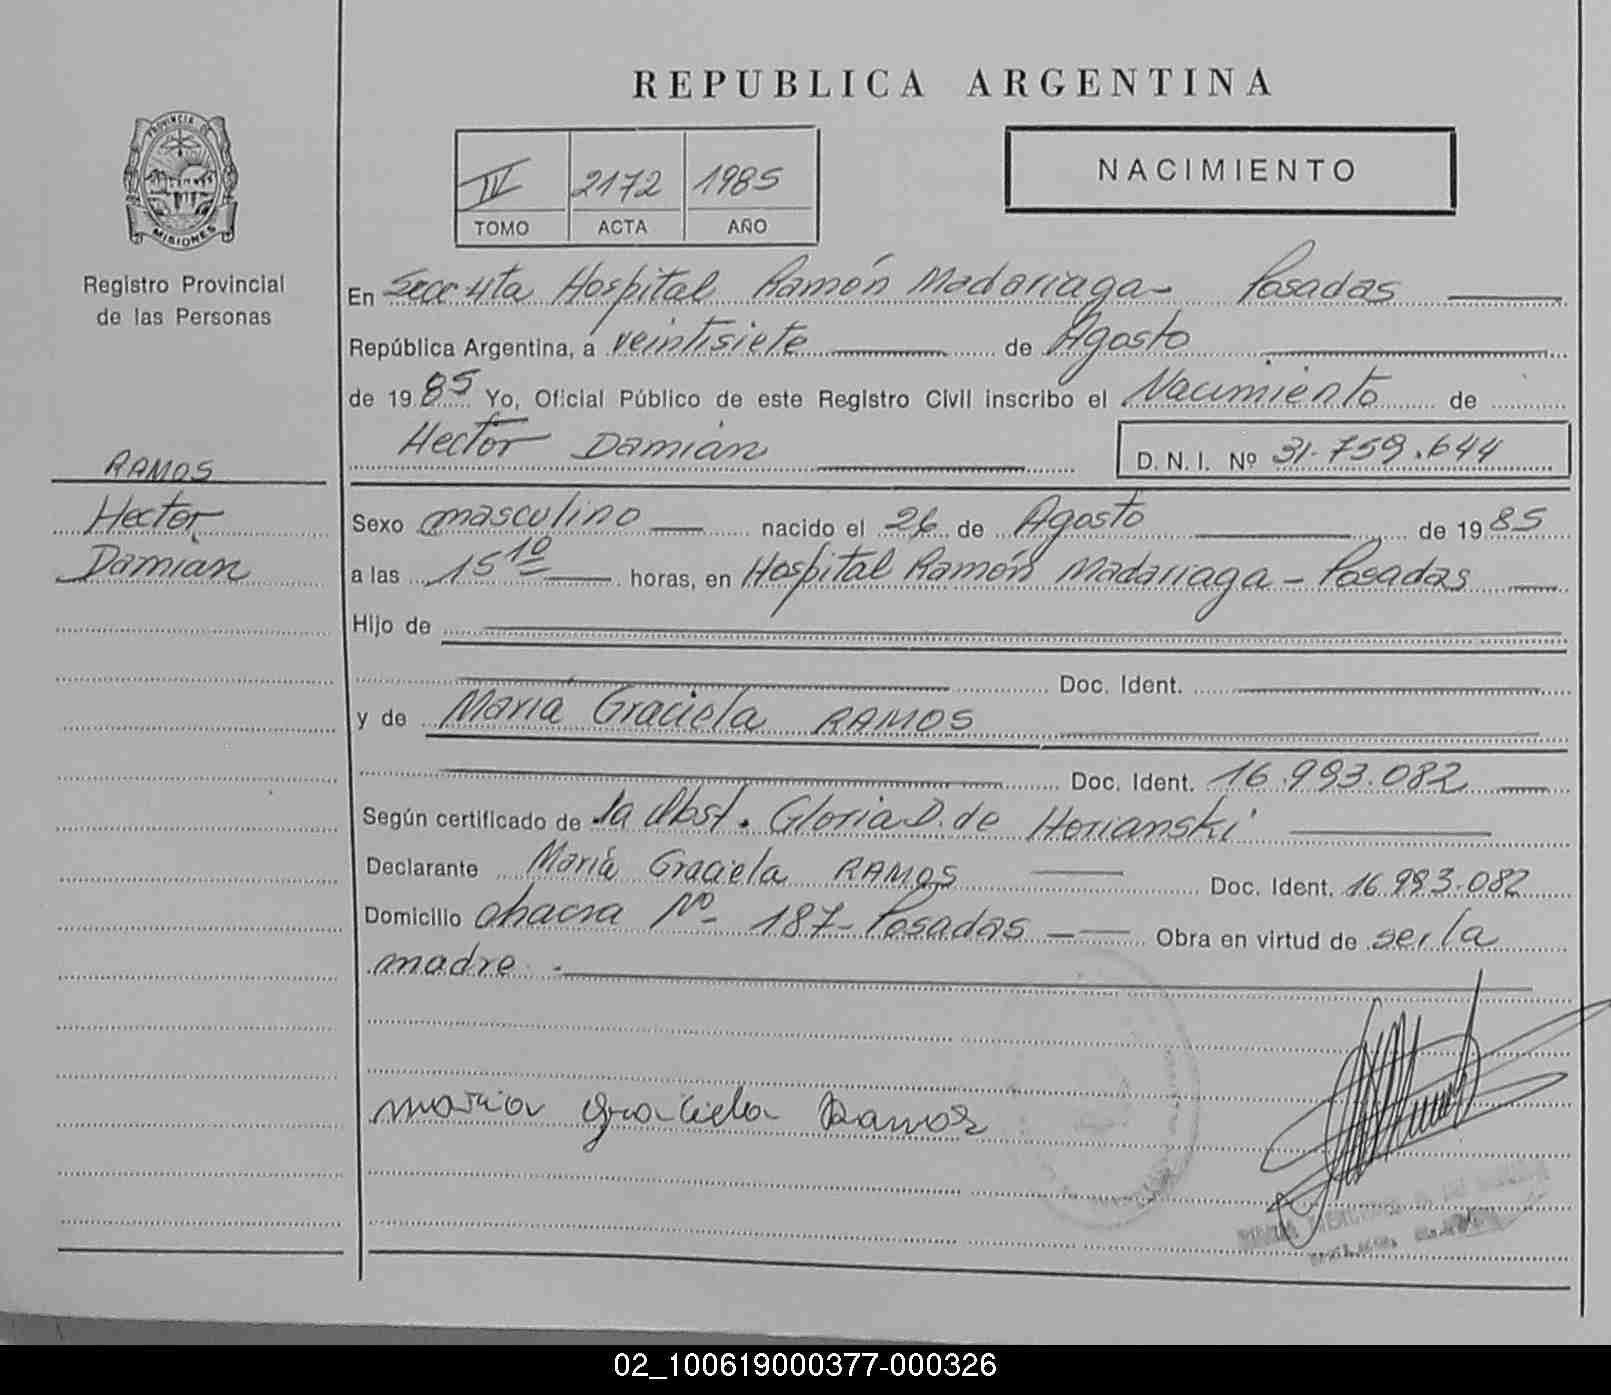 REPUBLICA ARGENTINA
PROVINCIA DE
MISIONES
Registro Provincial
de las Personas
IV 2172 1985
TOMO ACTA AÑO
NACIMIENTO
En Secc 4ta Hospital Ramón Madariaga - Posadas
República Argentina, a veintisiete de Agosto
de 1985 Yo, Oficial Público de este Registro Civil inscribo el Nacimiento de
Hector Damián
D. N. I. Nº 31.759.644
RAMOS
Hector
Damián
Sexo masculino nacido el 26 de Agosto de 1985
a las 15 10 horas, en Hospital Ramón Madariaga - Posadas
Hijo de
Doc. Ident.
y de María Graciela RAMOS
Doc. Ident. 16.993.082
Según certificado de la Obst. Gloria D. de Horianski
Declarante María Graciela RAMOS Doc. Ident. 16.993.082
Domicilio chacra Nº 187 - Posadas Obra en virtud de ser la
madre.
Maria Graciela Ramos
02_100619000377-000326